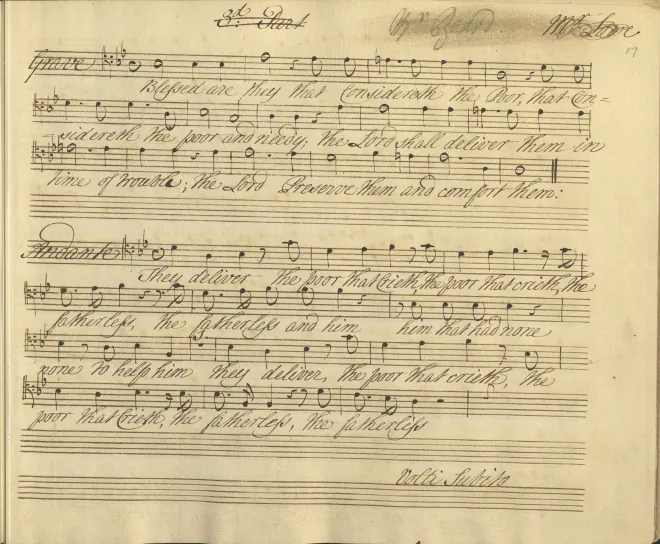 3.d Part
Mr. Lowe
17
Grave
Blessed are they that Considereth the Poor, that Con=
sidereth the poor and needy; the Lord shall deliver them in
time of trouble; the Lord Preserve them and comfort them:
Andante
They deliver the poor that Crieth, the poor that crieth, the
fatherless, the fatherless and him him that had none
none to help him they deliver, the poor that crieth, the
poor that Crieth, the fatherless, the fatherless
Volti Subito